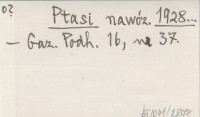 o?
Ptasi nawóz. 1928...
- Gaz. Podh. 16, nr 37.